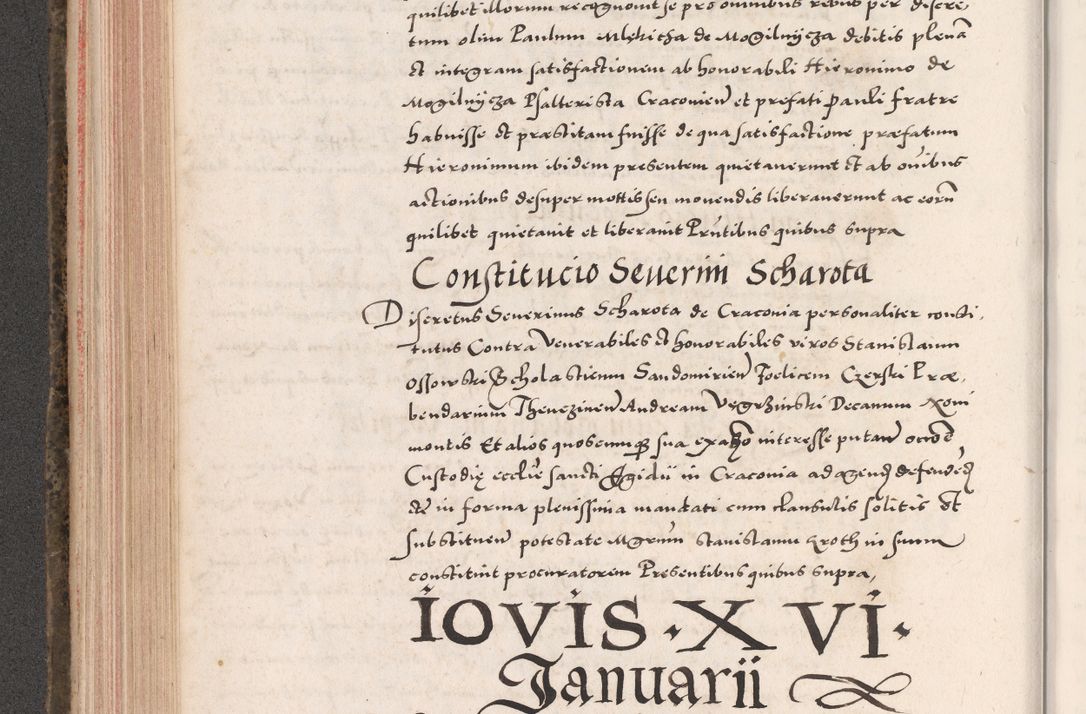 quilibet illorum recognovit se pro omnibus rebus per discre,
tum olim Paulum Mlykicza de Mogilnycza debitis plenā
et integram satisfactionem ab honorabili Hieronimo de
Mogilnycza Psalterista Cracovien et prefati Pauli fratre
habuisse et præstitam fuisse de qua satisfactione præfatum
Hieronimum ibidem presentem quietaverunt et ab oībus
actionibus desuper mottis seu movendis liberaverunt ac eorū
quilibet quietavit et liberavit Prntibus quibus supra
Constitucio Severini Scharota
Discretus Severinus Scharota de Cracovia personaliter consti,
tutus Contra Venerabiles et honorabiles viros Stanislaum
Ossowski Scholasticum Sandomirien Foelicem Czerski Præ,
bendarium Thenczinen Andream Vegrzinski Decanum Xωni
montis Et alios quoscumq sua interesse putan
Custodię ecclie sancti Ægidii in Cracovia ad agend defendēd
etc in forma plenissima mandati cum clausulis solitis et
substituen potestate Mgrum Stanislaum Kroth in suum
constituit procuratorem Presentibus quibus supra,
IOVIS · X VI ·
Januarii